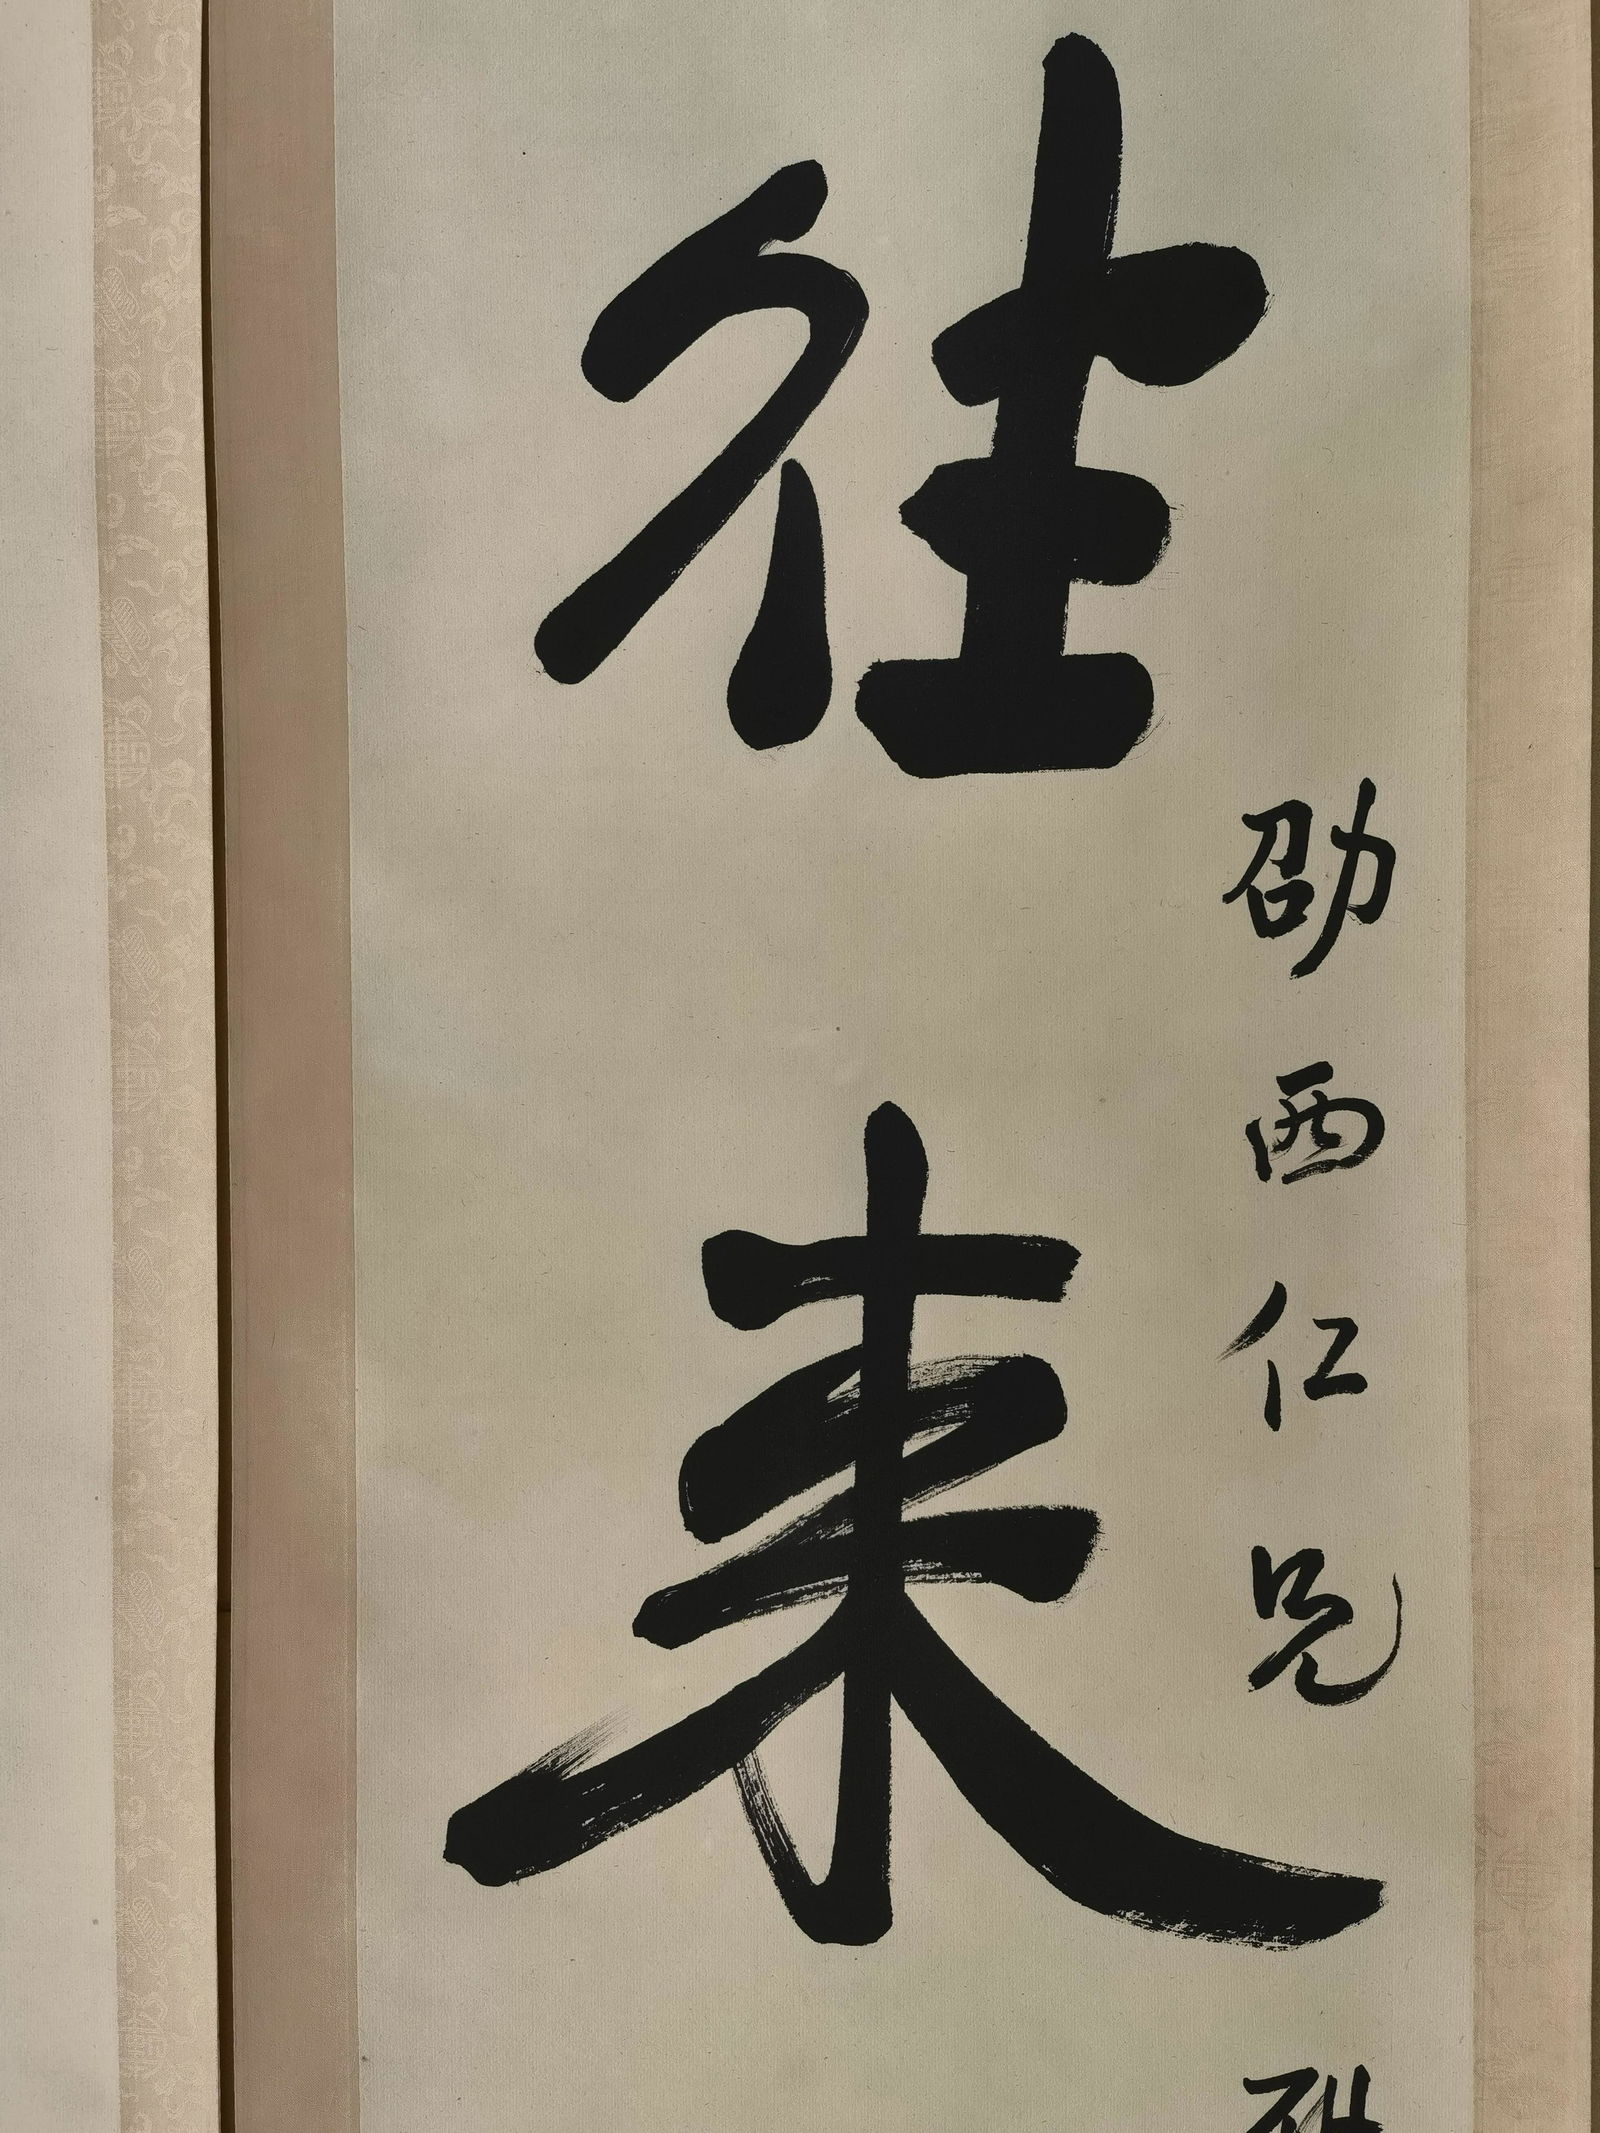 劭西仁兄
往来